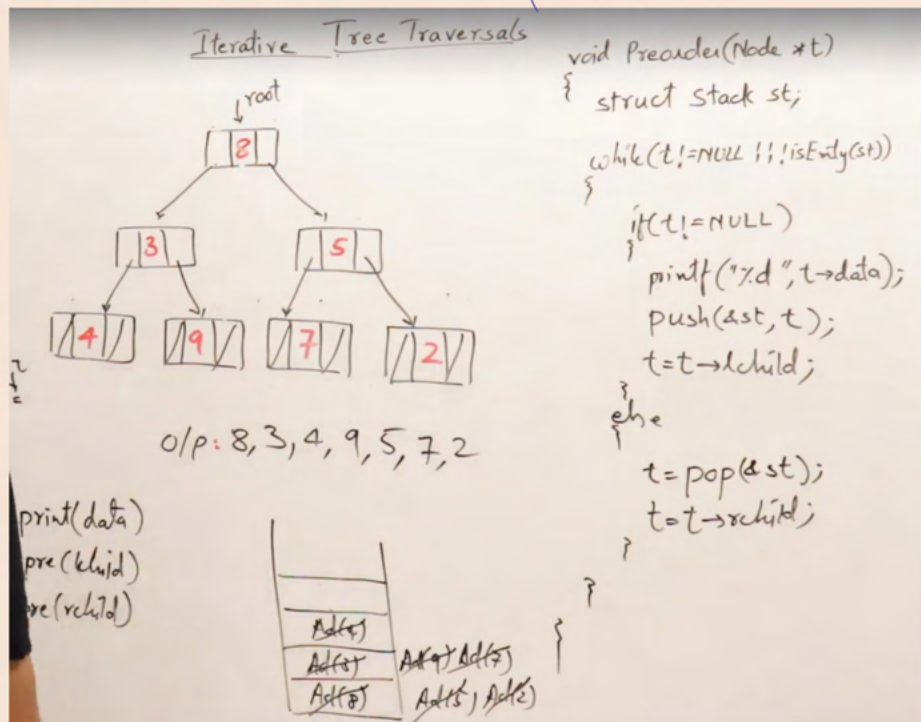 Iterative Tree Traversals
root
8
3 5
4 9 7 2
o/p: 8, 3, 4, 9, 5, 7, 2
print(data)
pre(lchild)
pre(rchild)
Ad(4)
Ad(3) Ad(9) Ad(7)
Ad(8) Ad(5) Ad(2)
void Preorder(Node *t)
{
struct Stack st;
while(t!=NULL ||!isEmty(st))
{
if(t!=NULL)
{
printf("%d",t→data);
push(&st,t);
t=t→lchild;
}
else
{
t=pop(&st);
t=t→rchild;
}
}
}